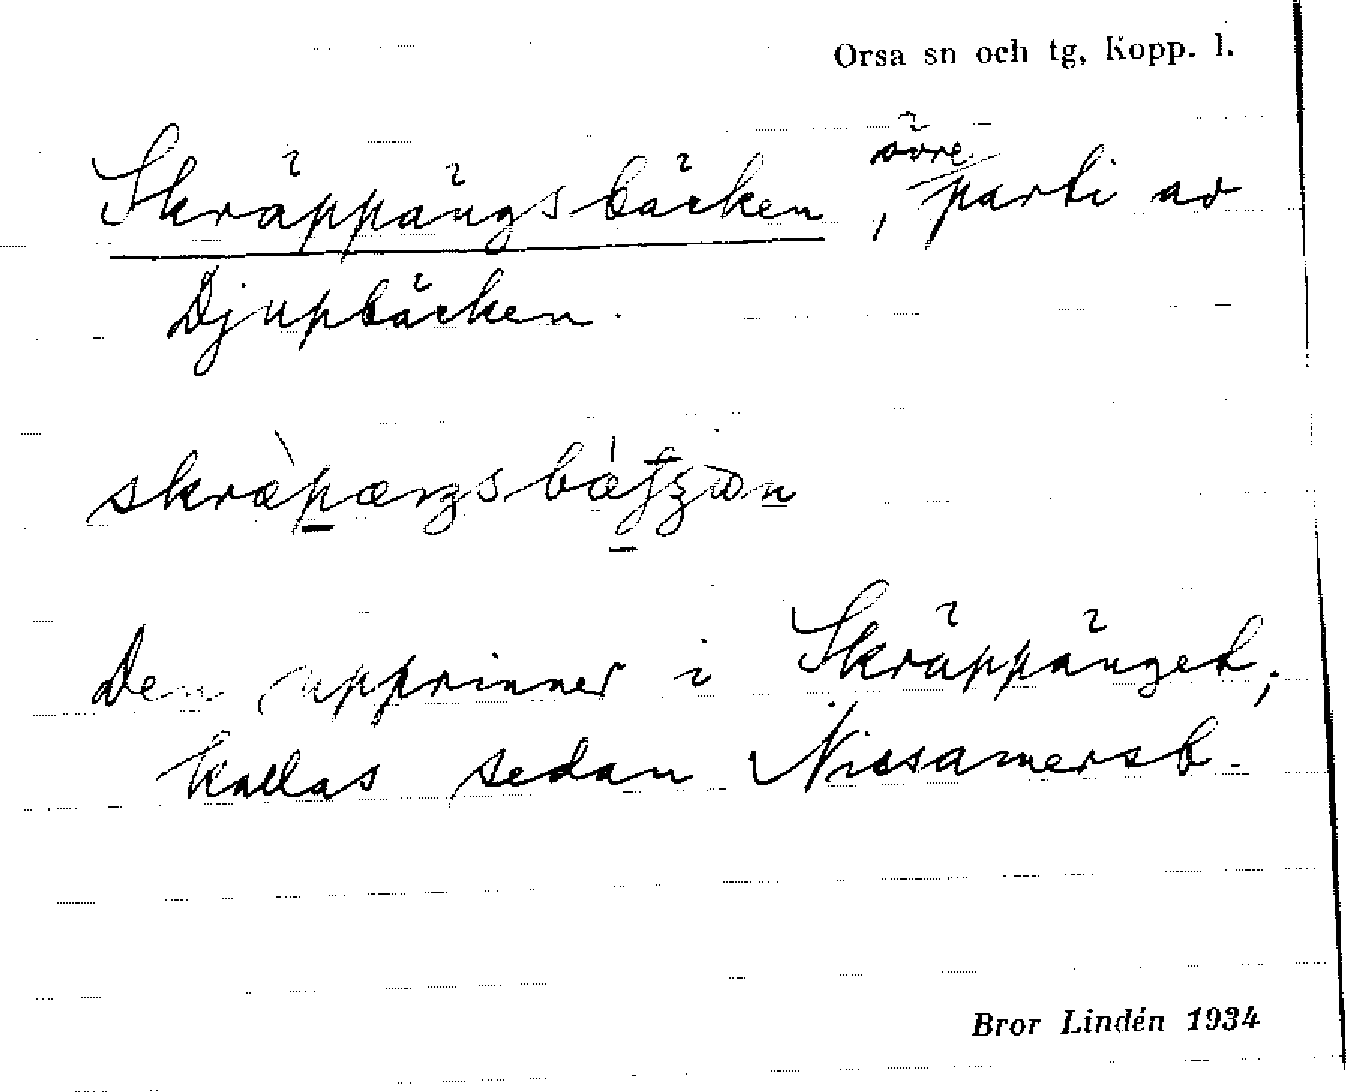 Orsa sn och tg, Kopp. l.
Skräppängsbäcken, övre parti av
Djupbäcken.
Den upprinner i Skräppänget,
kallas sedan Nissamersb.
Bror Lindén 1934